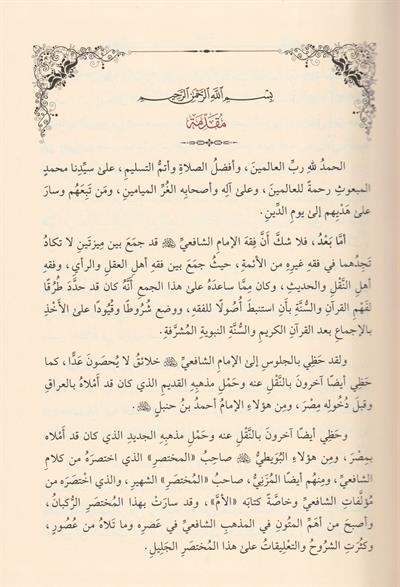 بِسْمِ اللَّهِ الرَّحْمَنِ الرَّحِيمِ
مُقَدِّمَة
الحمدُ للهِ ربِّ العالمينَ، وأفضلُ الصلاةِ وأتمُّ التسليمِ، علىٰ سيِّدِنا محمدٍ
المبعوثِ رحمةً للعالمينَ، وعلىٰ آلِه وأصحابِه الغُرِّ الميامينِ، ومَن تَبِعَهُم وسارَ
علىٰ هَدْيِهِم إلىٰ يومِ الدِّينِ.
أمَّا بَعْدُ، فلا شكَّ أَنَّ فِقهَ الإمامِ الشافعيِّ ﷺ قد جمَعَ بين مِيزتَينِ لا تكادُ
تَجِدُهما في فقهِ غيرِه من الأئمةِ، حيثُ جمَعَ بين فقهِ أهلِ العقلِ والرأيِ، وفقهِ
أهلِ النَّقْلِ والحديثِ، وكان مِمَّا ساعدَهُ علىٰ هذا الجمعِ أنَّه كان قد حدَّدَ طُرُقًا
لفَهْمِ القرآنِ والسُّنَّةِ بأن استنبطَ أُصولًا للفقهِ، ووضعَ شُرُوطًا وقُيُودًا علىٰ الأَخْذِ
بالإجماعِ بعد القرآنِ الكريمِ والسُّنَّةِ النبويةِ المُشرَّفةِ.
ولقد حَظِي بالجلوسِ إلىٰ الإمامِ الشافعيِّ ﷺ خلائقُ لا يُحصَونَ عَدًّا، كما
حَظِي أيضًا آخرونَ بالنَّقْلِ عنه وحَمْلِ مذهبِه القديمِ الذي كان قد أَمْلاهُ بالعراقِ
وقبلَ دُخُولِه مِصْرَ، ومِن هؤلاءِ الإمامُ أحمدُ بنُ حنبلٍ ﷺ.
وحَظِي أيضًا آخرونَ بالنَّقْلِ عنه وحَمْلِ مذهبِه الجديدِ الذي كان قد أَمْلاه
بمِصْرَ، ومِن هؤلاءِ البُوَيطيُّ ﷺ صاحبُ «المختصرِ» الذي اختصرَهُ من كلامِ
الشافعيِّ، ومِنهُم أيضًا المُزَنِيُّ، صاحبُ «المُختَصَرِ» الشهيرِ، والذي اخْتصَرَه من
مُؤلَّفاتِ الشافعيِّ وخاصَّةً كتابَه «الأمَّ»، وقد سارَتْ بهذا المُختَصَرِ الرُّكبانُ،
وأصبحَ من أهَمِّ المتُونِ في المذهبِ الشافعيِّ في عَصرِه وما تلاهُ من عُصُورٍ،
وكَثُرَتِ الشُروحُ والتعْلِيقاتُ علىٰ هذا المُختَصَرِ الجَلِيلِ.